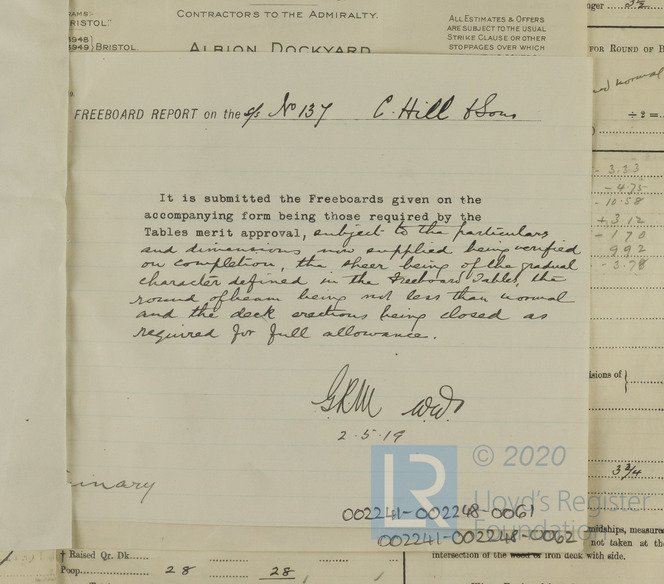 RAMS:-
RISTOL."
1948)
1949) BRISTOL
CONTRACTORS TO THE ADMIRALTY.
ALBION DOCKYARD
ALL ESTIMATES & OFFERS
ARE SUBJECT TO THE USUAL
STRIKE CLAUSE OR OTHER
STOPPAGES OVER WHICH
FOR ROUND OF B
normal
÷ 2 =
FREEBOARD REPORT on the s/s No 137 C. Hill & Sons
It is submitted the Freeboards given on the
accompanying form being those required by the
Tables merit approval, subject to the particulars
and dimensions now supplied being verified
on completion, the sheer being of the gradual
character defined in the Freeboard Tables, the
round of beam being not less than normal
and the deck erections being closed as
required for full allowance.
- 3.33
- 4.75
- 10.58
+ 3.12
- 1.70
9.92
- 3.78
isions of
3 3/4
GRM WW
2.5.19
inary
© 2020
LR
Lloyd's Register
Foundation
002241-002248-0061
002241-002248-0062
midships, measured
not taken at the
intersection of the wood or iron deck with side.
† Raised Qr. Dk.
Poop 28 28